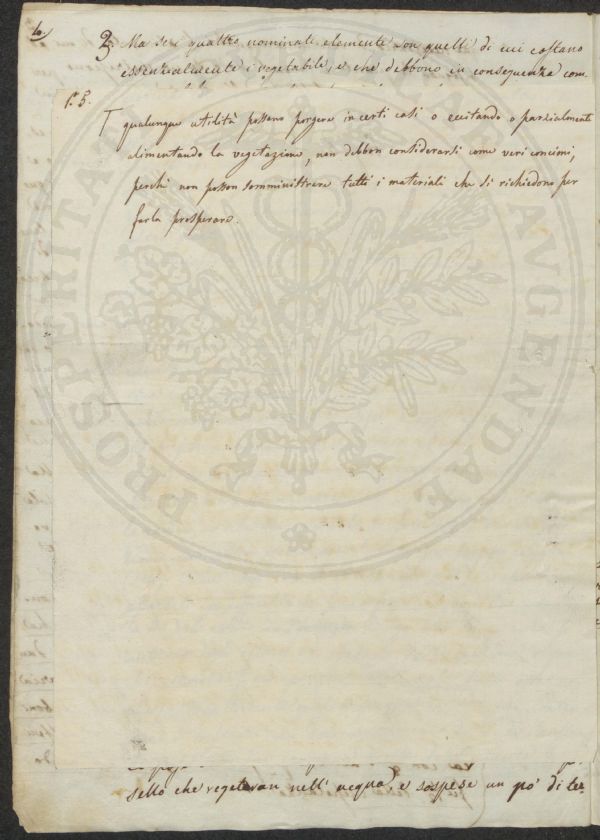 4
3. Ma se i quattro nominati elementi son quelli di cui costano
essenzialmente i vegetabili, e che debbono in conseguenza com-
P. 5.
T qualunque utilità possano porgere in certi casi o eccitando o parzialmente
alimentando la vegetazione, non debbon considerarsi come veri concimi,
perchè non posson somministrare tutti i materiali che si richiedono per
farla prosperare.
PROSPERITATI AVGENDAE
sello che vegetavan nell' acqua, e sospese un po' di ter-